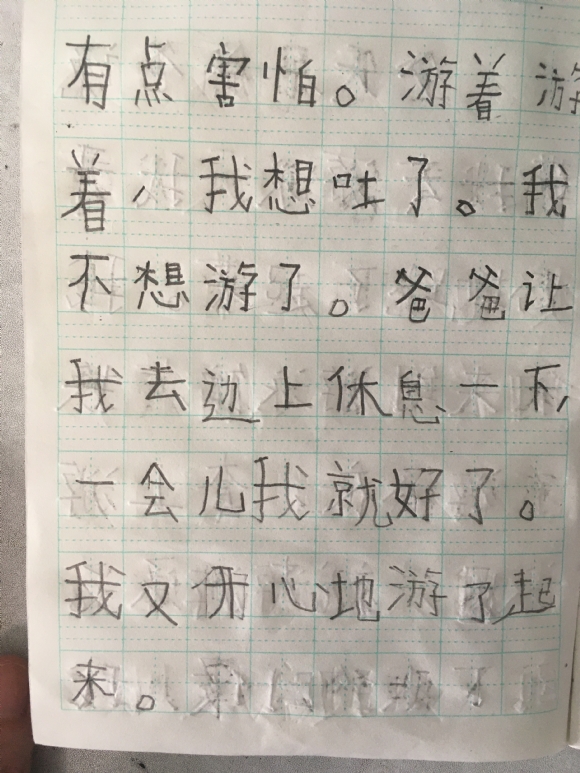 有点害怕。游着游
着，我想吐了。我
不想游了。爸爸让
我去边上休息一下，
一会儿我就好了。
我又开心地游了起
来。